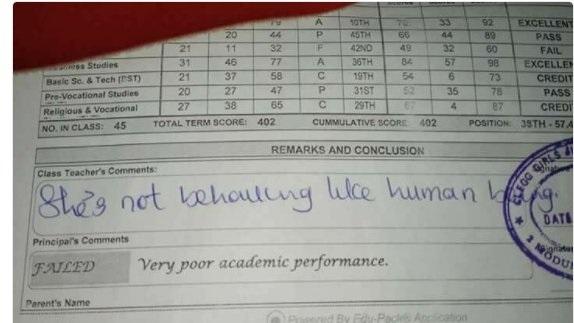 79 A 10TH 70 33 92 EXCELLENT
20 44 P 45TH 66 44 89 PASS
21 11 32 F 42ND 49 32 60 FAIL
Business Studies 31 46 77 A 36TH 84 57 98 EXCELLEN
Basic Sc. & Tech (BST) 21 37 58 C 19TH 54 6 73 CREDIT
Pre-Vocational Studies 20 27 47 P 31ST 52 35 78 PASS
Religious & Vocational 27 38 65 C 29TH 67 4 87 CREDI
NO. IN CLASS: 45 TOTAL TERM SCORE: 402 CUMMULATIVE SCORE: 402 POSITION: 38TH - 57.4
REMARKS AND CONCLUSION
Class Teacher's Comments:
She's not behaving like human being.
Principal's Comments
FAILED Very poor academic performance.
Parent's Name
Powered By Edu-Pack Application
GIRLS
DATE
MODU